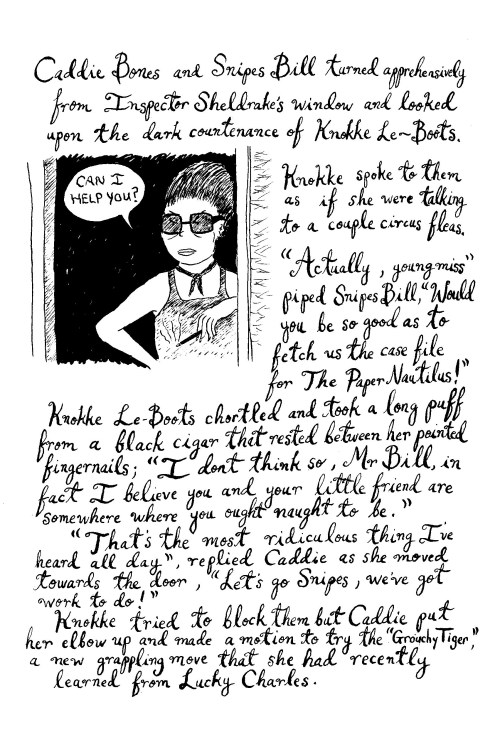 Caddie Bones and Snipes Bill turned apprehensively
from Inspector Sheldrake's window and looked
upon the dark countenance of Knokke Le~Boots.
CAN I
HELP YOU?
Knokke spoke to them
as if she were talking
to a couple circus fleas.
"Actually, young miss"
piped Snipes Bill, "Would
you be so good as to
fetch us the case file
for The Paper Nautilus!"
Knokke Le-Boots chortled and took a long puff
from a black cigar that rested between her pointed
fingernails; "I dont think so, Mr Bill, in
fact I believe you and your little friend are
somewhere where you ought naught to be."
"That's the most ridiculous thing I've
heard all day", replied Caddie as she moved
towards the door, "Let's go Snipes, we've got
work to do!"
Knokke tried to block them but Caddie put
her elbow up and made a motion to try the "Grouchy Tiger,"
a new grappling move that she had recently
learned from Lucky Charles.